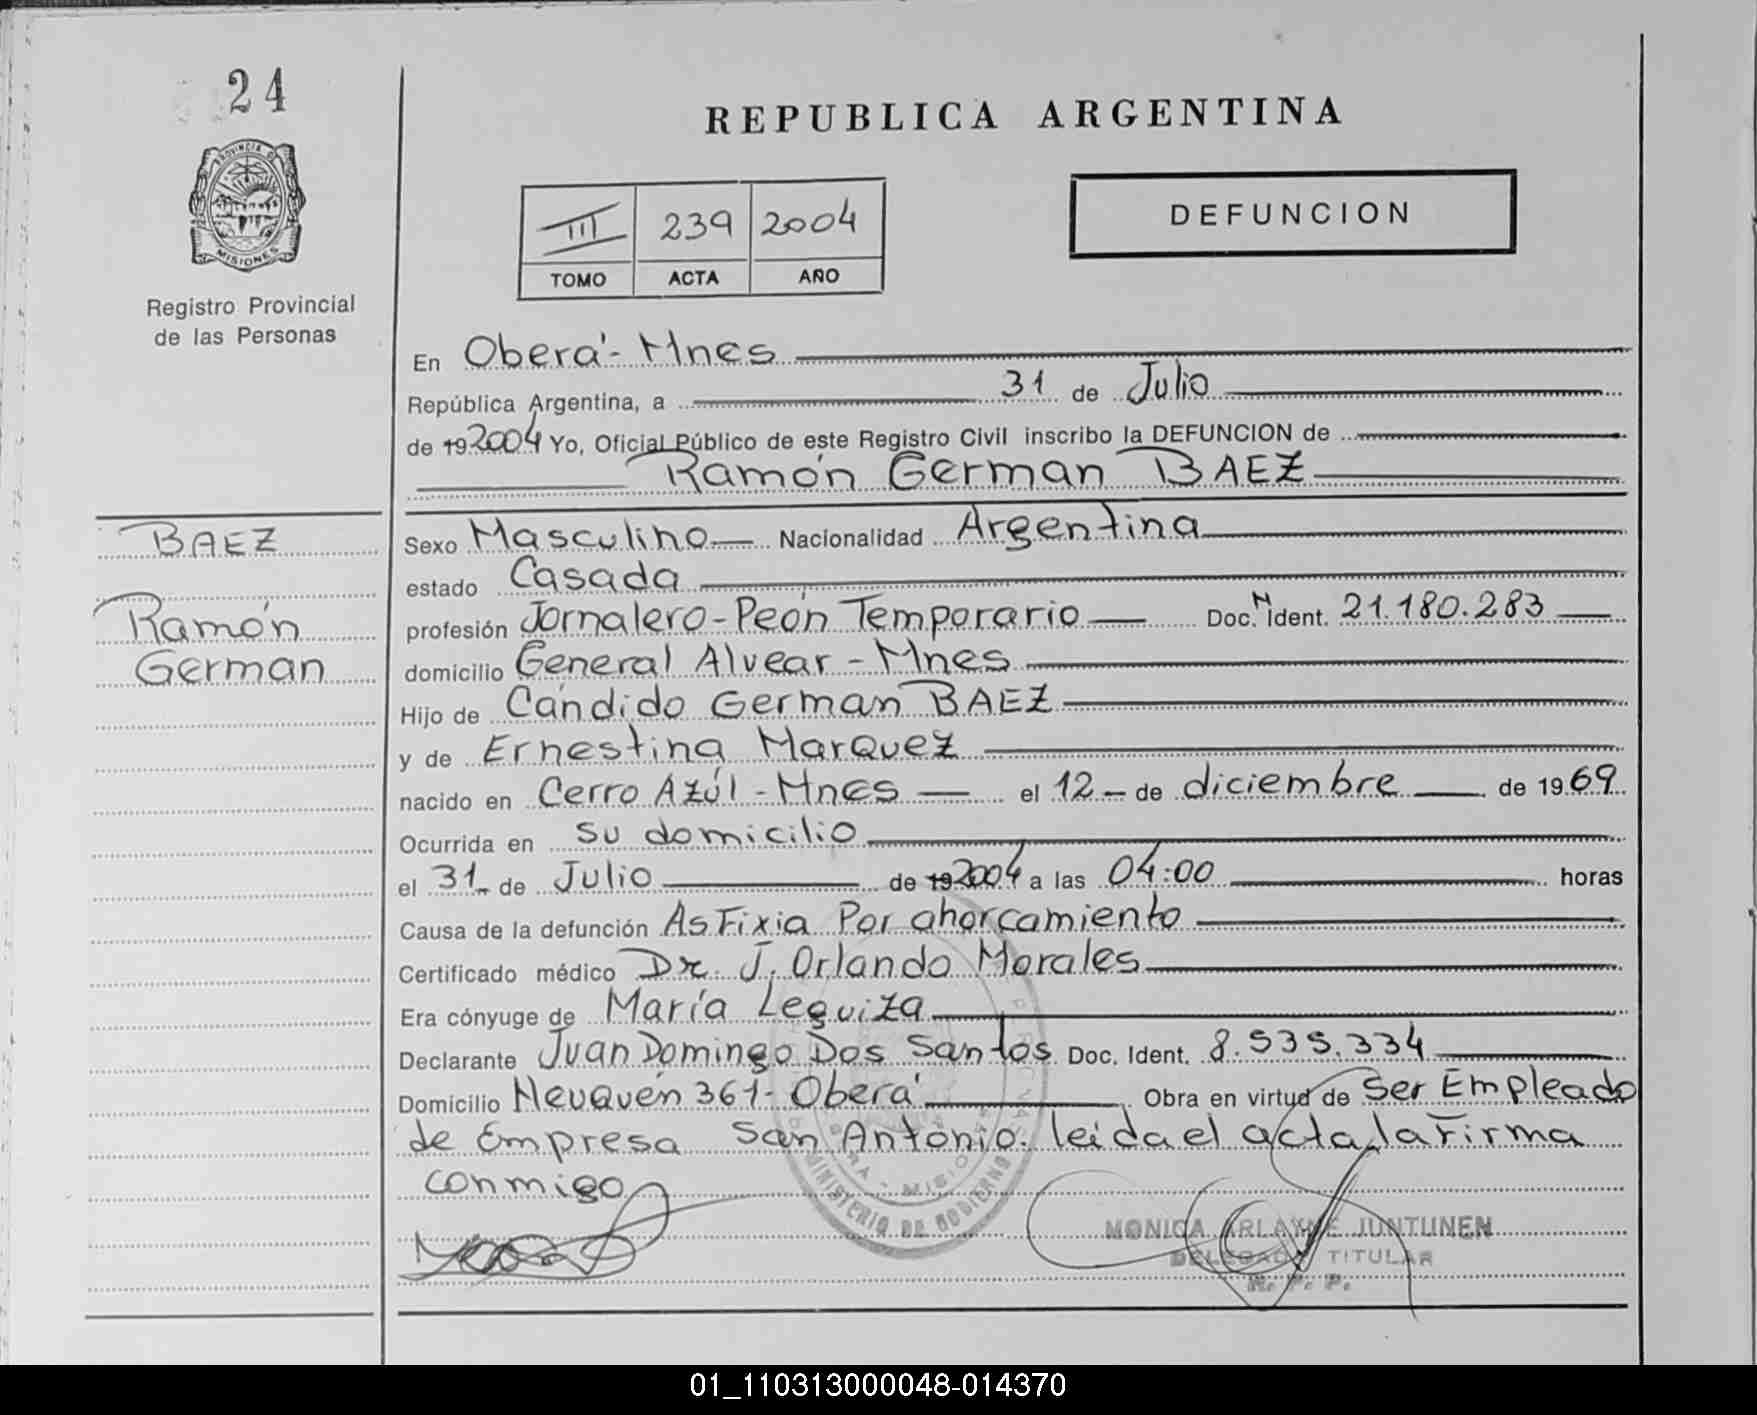 24
PROVINCIA DE
MISIONES
Registro Provincial
de las Personas
REPUBLICA ARGENTINA
III 239 2004
TOMO ACTA AÑO
DEFUNCION
En Oberá - Mnes
República Argentina, a 31 de Julio
de 19 2004 Yo, Oficial Público de este Registro Civil inscribo la DEFUNCION de
Ramón German BAEZ
BAEZ
Ramón
German
Sexo Masculino Nacionalidad Argentina
estado Casada
profesión Jornalero - Peón Temporario Doc. N Ident. 21.180.283
domicilio General Alvear - Mnes
Hijo de Cándido German BAEZ
y de Ernestina Marquez
nacido en Cerro Azúl - Mnes el 12 de diciembre de 1969
Ocurrida en su domicilio
el 31 de Julio de 19 2004 a las 04:00 horas
Causa de la defunción Asfixia Por ahorcamiento
Certificado médico Dr. J. Orlando Morales
Era cónyuge de María Leguiza
Declarante Juan Domingo Dos Santos Doc. Ident. 8.535.334
Domicilio Neuquén 361 - Oberá Obra en virtud de Ser Empleado
de Empresa San Antonio. leida el acta, la Firma
conmigo
MINISTERIO DE GOBIERNO
MONICA ARLAYNE JUNTUNEN
DELEGADA TITULAR
R. P. P.
01_110313000048-014370